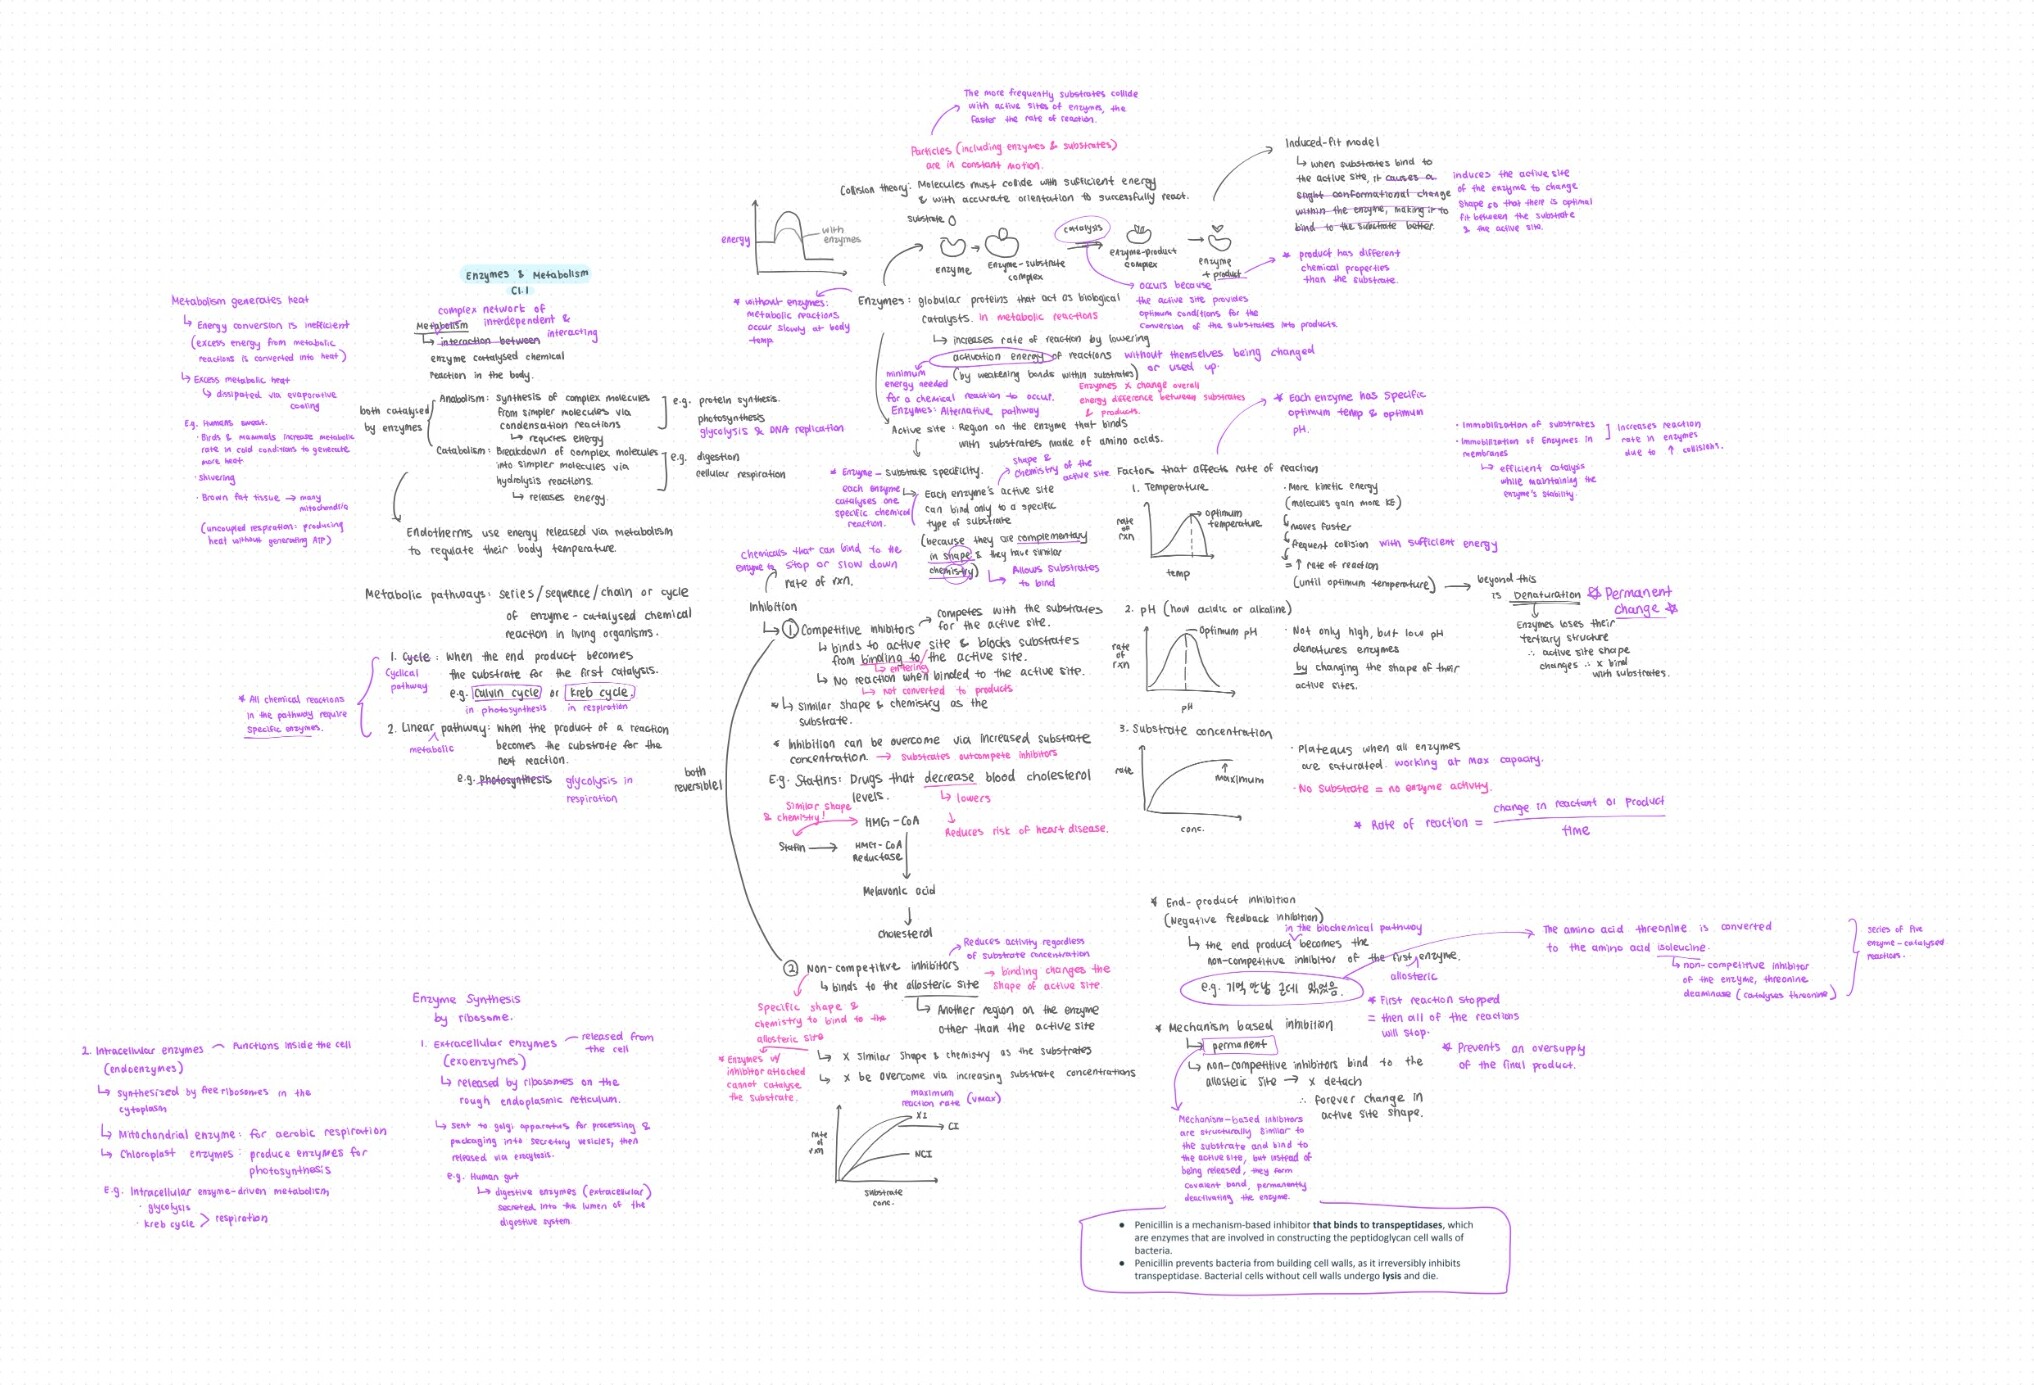 Enzymes & Metabolism
C1.1
complex network of
interdependent &
interacting
Metabolism
↳ interaction between
enzyme catalysed chemical
reaction in the body.
Metabolism generates heat
↳ Energy conversion is inefficient
(excess energy from metabolic
reactions is converted into heat)
↳ Excess metabolic heat
↳ dissipated via evaporative
cooling
E.g. Humans sweat.
· Birds & mammals increase metabolic
rate in cold conditions to generate
more heat
· Shivering
· Brown fat tissue → many
mitochondria
(uncoupled respiration: producing
heat without generating ATP)
both catalysed
by enzymes
Anabolism: Synthesis of complex molecules
from simpler molecules via
condensation reactions
↳ requires energy
e.g. protein synthesis.
photosynthesis
glycolysis & DNA replication
Catabolism: Breakdown of complex molecules
into simpler molecules via
hydrolysis reactions.
↳ releases energy.
e.g. digestion
cellular respiration
Endotherms use energy released via metabolism
to regulate their body temperature.
Metabolic pathways: series/sequence/chain or cycle
of enzyme-catalysed chemical
reaction in living organisms.
1. Cycle: When the end product becomes
the substrate for the first catalysis.
Cyclical
pathway
e.g. Calvin cycle or kreb cycle.
in photosynthesis in respiration
* All chemical reactions
in the pathway require
specific enzymes.
2. Linear pathway: when the product of a reaction
metabolic
becomes the substrate for the
next reaction.
e.g. Photosynthesis glycolysis in
respiration
The more frequently substrates collide
with active sites of enzymes, the
faster the rate of reaction.
Particles (including enzymes & substrates)
are in constant motion.
Collision theory: Molecules must collide with sufficient energy
& with accurate orientation to successfully react.
energy
with
enzymes
substrate
enzyme
Enzyme-substrate
complex
catalysis
enzyme-product
complex
enzyme
+ product
Induced-fit model
↳ when substrates bind to
the active site, it causes a
slight conformational change
within the enzyme, making it to
bind to the substrate better.
induces the active site
of the enzyme to change
shape so that there is optimal
fit between the substrate
& the active site.
* product has different
chemical properties
than the substrate.
occurs because
the active site provides
optimum conditions for the
conversion of the substrates into products.
* without enzymes:
metabolic reactions
occur slowly at body
temp
Enzymes: globular proteins that act as biological
catalysts. in metabolic reactions
↳ increases rate of reaction by lowering
activation energy of reactions without themselves being changed
or used up.
(by weakening bonds within substrates)
minimum
energy needed
for a chemical reaction to occur.
Enzymes x change overall
energy difference between substrates
& products.
Enzymes: Alternative pathway
Active site: Region on the enzyme that binds
with substrates made of amino acids.
* Enzyme-substrate specificity.
shape &
chemistry of the
active site
each enzyme
catalyses one
specific chemical
reaction.
↳ Each enzyme's active site
can bind only to a specific
type of substrate
(because they are complementary
in shape & they have similar
chemistry)
↳ Allows substrates
to bind
Factors that affects rate of reaction
* Each enzyme has specific
optimum temp & optimum
pH.
· Immobilization of substrates
· Immobilization of Enzymes in
membranes
Increases reaction
rate in enzymes
due to ↑ collisions.
↳ efficient catalysis
while maintaining the
enzyme's stability.
1. Temperature
rate
of
rxn
optimum
temperature
temp
· More kinetic energy
(molecules gain more KE)
moves faster
frequent collision with sufficient energy
= ↑ rate of reaction
(until optimum temperature) → beyond this
is Denaturation
Permanent
change
Enzymes loses their
tertiary structure
∴ active site shape
changes ∴ x bind
with substrates.
2. pH (how acidic or alkaline)
rate
of
rxn
Optimum pH
pH
· Not only high, but low pH
denatures enzymes
by changing the shape of their
active sites.
3. Substrate concentration
rate
maximum
conc.
· Plateaus when all enzymes
are saturated. working at max capacity.
· No substrate = no enzyme activity.
* Rate of reaction = change in reactant or product
time
Chemicals that can bind to the
enzyme to stop or slow down
rate of rxn.
Inhibition
↳ ① Competitive inhibitors
competes with the substrates
for the active site.
↳ binds to active site & blocks substrates
from binding to the active site.
↳ entering
↳ No reaction when binded to the active site.
↳ not converted to products
* ↳ Similar shape & chemistry as the
substrate.
* Inhibition can be overcome via increased substrate
concentration. → Substrates outcompete inhibitors
E.g. Statins: Drugs that decrease blood cholesterol
levels.
↳ lowers
↓
Reduces risk of heart disease.
Similar shape
& chemistry!
HMG-CoA
Statin → HMG-CoA
Reductase
Melavonic acid
Cholesterol
both
reversible!
② Non-competitive inhibitors
Reduces activity regardless
of substrate concentration
↳ binds to the allosteric site
→ binding changes the
shape of active site.
↳ Another region on the enzyme
other than the active site
Specific shape &
chemistry to bind to the
allosteric site
* Enzymes w/
inhibitor attached
cannot catalyse
the substrate.
↳ x similar shape & chemistry as the substrates
↳ x be overcome via increasing substrate concentrations
maximum
reaction rate (vmax)
rate
of
rxn
XI
CI
NCI
substrate
conc.
* End-product inhibition
(Negative feedback inhibition)
in the biochemical pathway
↳ the end product becomes the
non-competitive inhibitor of the first enzyme.
allosteric
e.g. 기억 안남 근데 있었음.
The amino acid threonine is converted
to the amino acid isoleucine.
↳ non-competitive inhibitor
of the enzyme, threonine
deaminase (catalyses threonine)
series of five
enzyme-catalysed
reactions.
* First reaction stopped
= then all of the reactions
will stop.
* Prevents an oversupply
of the final product.
* Mechanism based inhibition
↳ permanent
↳ non-competitive inhibitors bind to the
allosteric site → x detach
∴ forever change in
active site shape.
Mechanism-based inhibitors
are structurally similar to
the substrate and bind to
the active site, but instead of
being released, they form
covalent bond, permanently
deactivating the enzyme.
• Penicillin is a mechanism-based inhibitor that binds to transpeptidases, which
are enzymes that are involved in constructing the peptidoglycan cell walls of
bacteria.
• Penicillin prevents bacteria from building cell walls, as it irreversibly inhibits
transpeptidase. Bacterial cells without cell walls undergo lysis and die.
Enzyme Synthesis
by ribosome.
1. Extracellular enzymes — released from
the cell
(exoenzymes)
↳ released by ribosomes on the
rough endoplasmic reticulum.
↳ sent to golgi apparatus for processing &
packaging into secretory vesicles, then
released via exocytosis.
e.g. Human gut
↳ digestive enzymes (extracellular)
secreted into the lumen of the
digestive system.
2. Intracellular enzymes — functions inside the cell
(endoenzymes)
↳ synthesized by free ribosomes in the
cytoplasm
↳ Mitochondrial enzyme: for aerobic respiration
↳ Chloroplast enzymes: produce enzymes for
photosynthesis
E.g. Intracellular enzyme-driven metabolism
· glycolysis
· kreb cycle > respiration